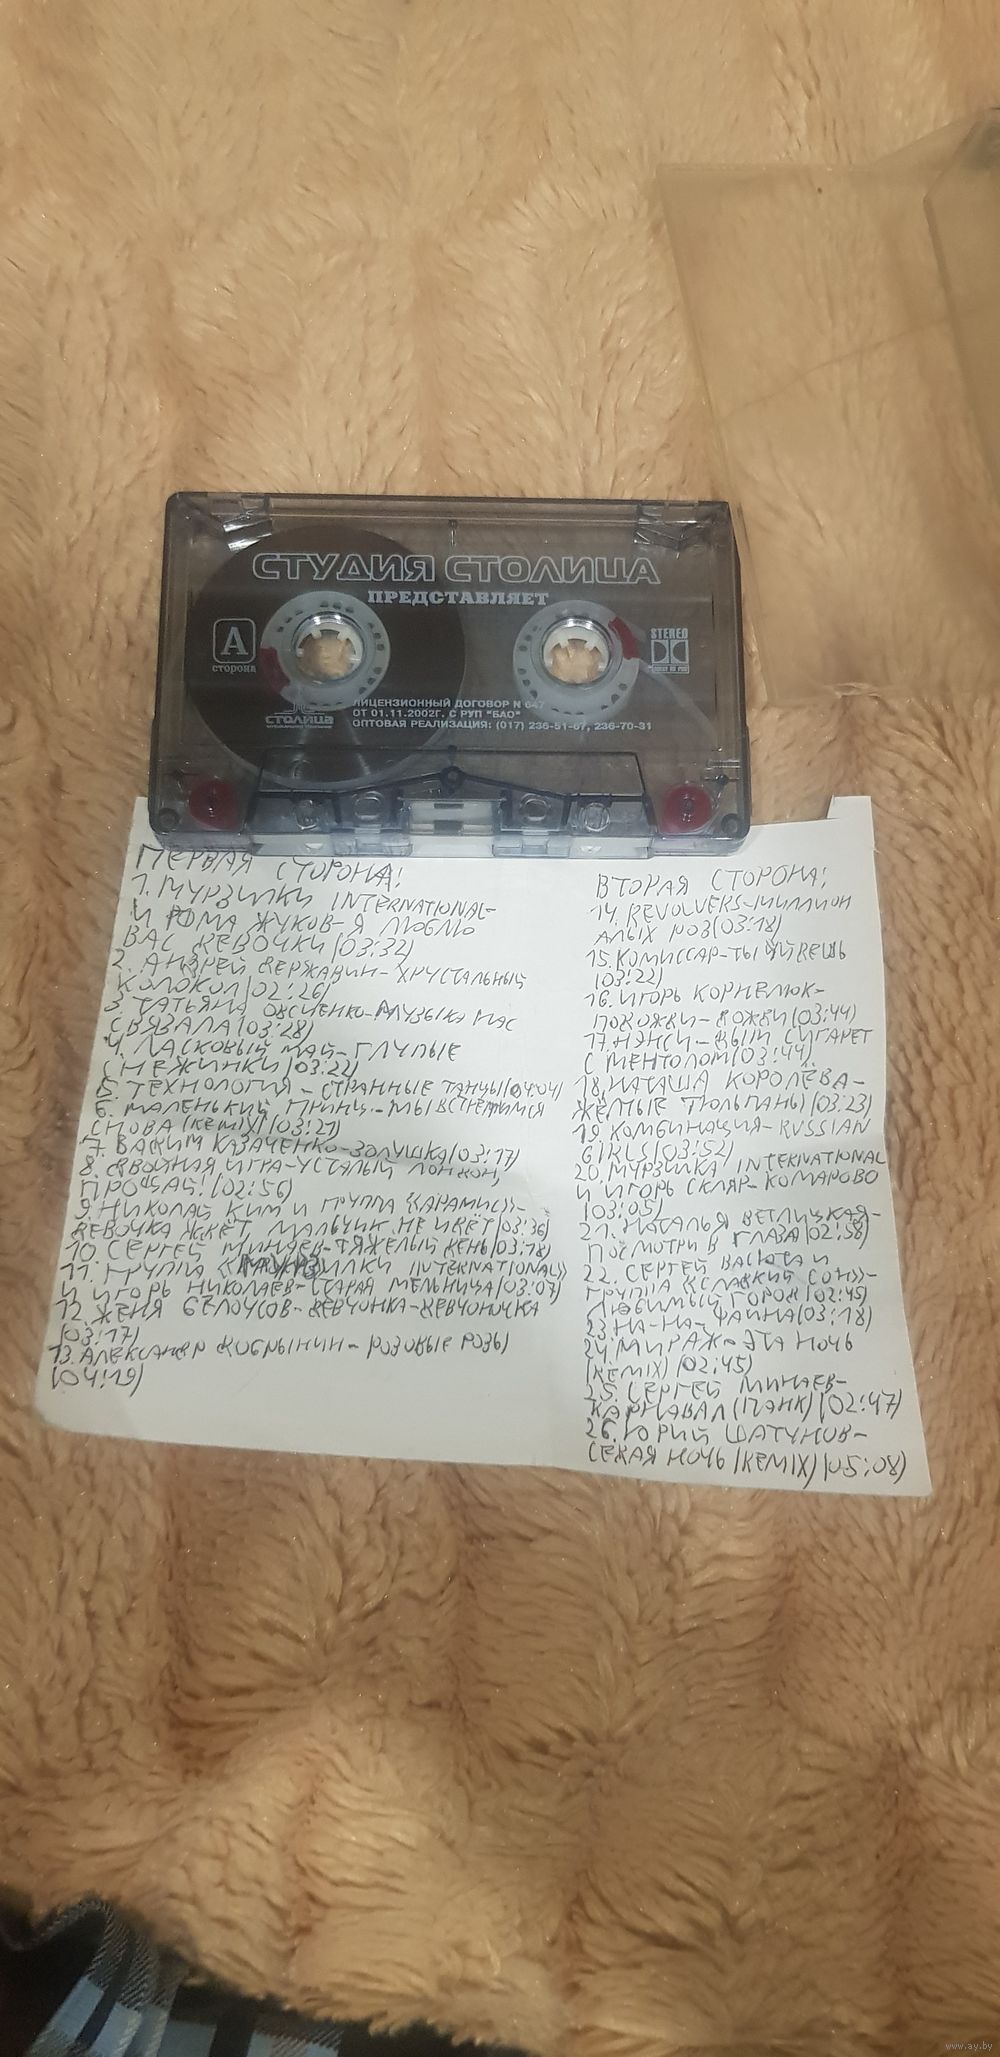 СТУДИЯ СТОЛИЦА
ПРЕДСТАВЛЯЕТ
А
сторона
STEREO
столица
ЛИЦЕНЗИОННЫЙ ДОГОВОР N 647
ОТ 01.11.2002Г. С РУП "БАО"
ОПТОВАЯ РЕАЛИЗАЦИЯ: (017) 236-51-67, 236-70-31
ПЕРВАЯ СТОРОНА!
1. МУРЗИЛКИ INTERNATIONAL-
И РОМА ЖУКОВ-Я ЛЮБЛЮ
ВАС ДЕВОЧКИ (03:32)
2. АНДРЕЙ ДЕРЖАВИН-ХРУСТАЛЬНЫЙ
КОЛОКОЛ (02:26)
3. ТАТЬЯНА ОВСИЕНКО-МУЗЫКА НАС
СВЯЗАЛА (03:28)
4. ЛАСКОВЫЙ МАЙ-ГЛУПЫЕ
СНЕЖИНКИ (03:22)
5. ТЕХНОЛОГИЯ-СТРАННЫЕ ТАНЦЫ (04:04)
6. МАЛЕНЬКИЙ ПРИНЦ-МЫ ВСТРЕТИМСЯ
СНОВА (REMIX) (03:21)
7. ВАДИМ КАЗАЧЕНКО-ЗОЛУШКА (03:17)
8. ДВОЙНАЯ ИГРА-УСТАЛЫЙ ЛОНДОН,
ПРОЩАЙ! (02:56)
9. НИКОЛАЙ КИМ И ГРУППА «АРАМИС»-
ДЕВОЧКА ЖДЁТ, МАЛЬЧИК НЕ ИДЁТ (03:36)
10. СЕРГЕЙ МИНАЕВ-ТЯЖЕЛЫЙ ДЕНЬ (03:18)
11. ГРУППА «МУРЗИЛКИ INTERNATIONAL»
И ИГОРЬ НИКОЛАЕВ-СТАРАЯ МЕЛЬНИЦА (03:07)
12. ЖЕНЯ БЕЛОУСОВ-ДЕВЧОНКА-ДЕВЧОНОЧКА
(03:17)
13. АЛЕКСАНДР ДОБРЫНИН-РОЗОВЫЕ РОЗЫ
(04:19)
ВТОРАЯ СТОРОНА!
14. REVOLVERS-МИЛЛИОН
АЛЫХ РОЗ (03:18)
15. КОМИССАР-ТЫ УЙДЕШЬ
(03:22)
16. ИГОРЬ КОРНЕЛЮК-
ПОДОЖДИ-ДОЖДИ (03:44)
17. НЭНСИ-ДЫМ СИГАРЕТ
С МЕНТОЛОМ (03:44)
18. НАТАША КОРОЛЁВА-
ЖЁЛТЫЕ ТЮЛЬПАНЫ (03:23)
19. КОМБИНАЦИЯ-RUSSIAN
GIRLS (03:52)
20. МУРЗИЛКА INTERNATIONAL
И ИГОРЬ СКЛЯР-КОМАРОВО
(03:05)
21. НАТАЛЬЯ ВЕТЛИЦКАЯ-
ПОСМОТРИ В ГЛАЗА (02:58)
22. СЕРГЕЙ ВАСЮТА И
ГРУППА «СЛАДКИЙ СОН»-
ЛЮБИМЫЙ ГОРОД (02:45)
23. НА-НА-ФАИНА (03:18)
24. МИРАЖ-ЭТА НОЧЬ
(REMIX) (02:45)
25. СЕРГЕЙ МИНАЕВ-
КАРНАВАЛ (ПАНК) (02:47)
26. ЮРИЙ ШАТУНОВ-
СЕДАЯ НОЧЬ (REMIX) (05:08)
www.ay.by